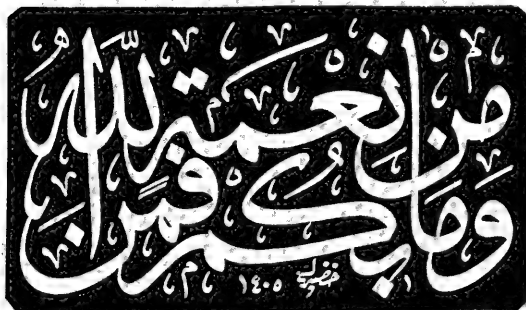 وما بكم من نعمة فمن الله
خضير ١٤٠٥